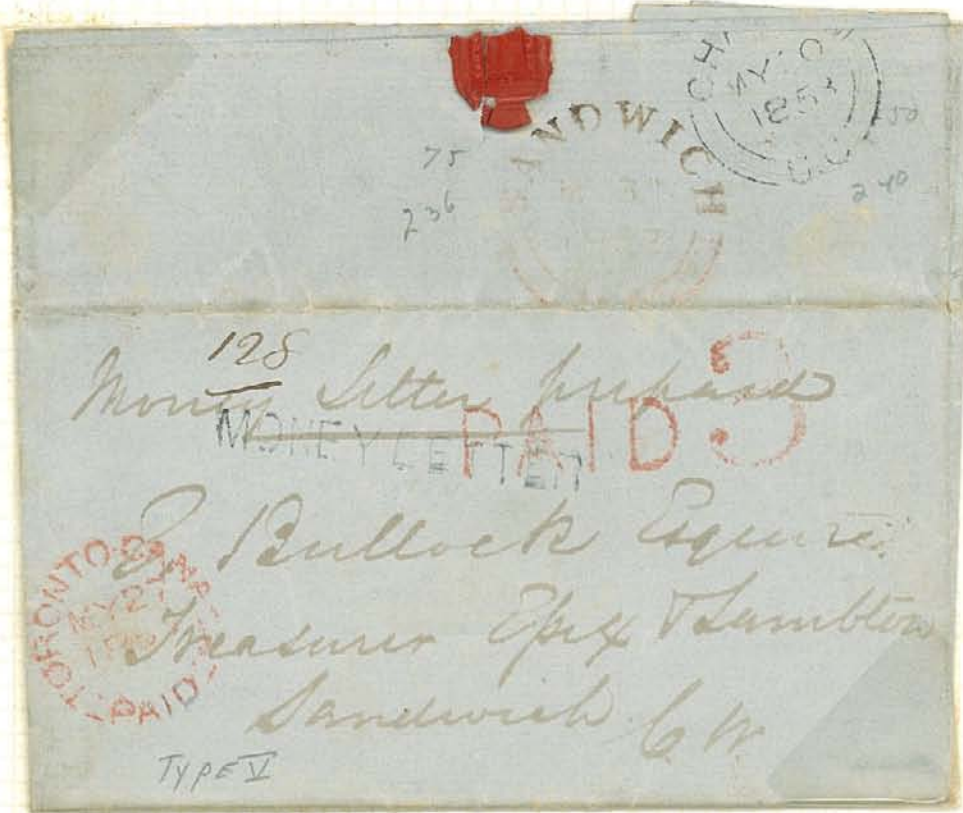 SANDWICH
1853
75
236
240
128
Money Letter prepaid
MONEY LETTER
PAID 3
E Bullock Esquire
Treasurer Essex & Lambton
Sandwich C W
TORONTO
MY 2
PAID
TYPE V